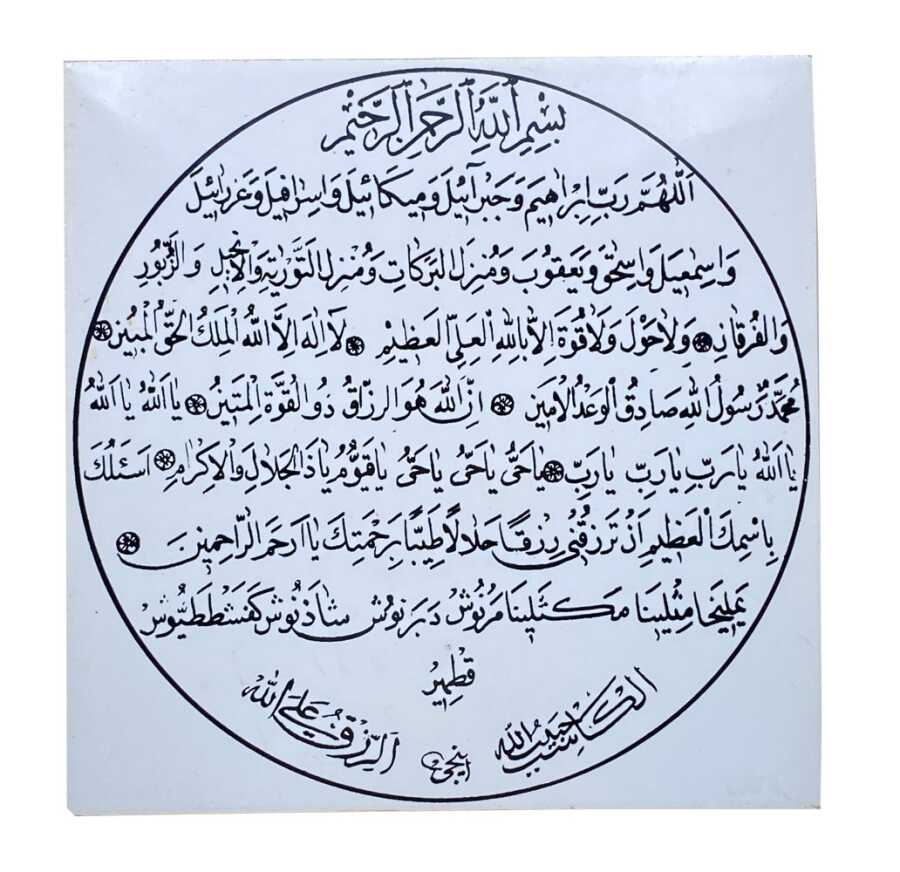 بِسْمِ اللهِ الرَّحْمٰنِ الرَّحِيْمِ
اَللّٰهُمَّ رَبِّ اِبْرَاهِيمَ وَجَبْرَآئِيلَ وَمِيكَائِيلَ وَاِسْرَافِيلَ وَعَزْرَائِيلَ
وَاِسْمٰعِيلَ وَاِسْحٰقَ وَيَعْقُوبَ وَمُنْزِلَ الْبَرَكَاتِ وَمُنْزِلَ التَّوْرٰيةِ وَالْاِنْجِيلِ وَالزَّبُورِ
وَالْفُرْقَانِ وَلَاحَوْلَ وَلَاقُوَّةَ اِلَّا بِاللهِ الْعَلِيِّ الْعَظِيْمِ لَااِلٰهَ اِلَّا اللهُ الْمَلِكُ الْحَقُّ الْمُبِينُ
مُحَمَّدٌ رَسُولُ اللهِ صَادِقُ الْوَعْدُ الْاَمِينِ اِنَّ اللهَ هُوَ الرَّزَّاقُ ذُو الْقُوَّةِ الْمَتِينُ يَا اَللهُ يَا اَللهُ
يَا اَللهُ يَارَبِّ يَارَبِّ يَارَبِّ يَاحَيُّ يَاحَيُّ يَاحَيُّ يَاقَيُّومُ يَاذَ الْجَلَالِ وَالْاِكْرَامِ اَسْئَلُكَ
بِاسْمِكَ الْعَظِيمِ اَنْ تَرْزُقَنِي رِزْقًا حَلَالًا طَيِّبًا بِرَحْمَتِكَ يَا اَرْحَمَ الرَّاحِمِينَ
يَمْلِيخَا مِثْلِينَا مَكْثَلِينَا مَرْنُوشْ دَبَرْنُوشْ شَاذَنُوشْ كَفَشْطَطَيُّوشْ
قِطْمِيرْ
اَلرِّزْقُ عَلَى الله
اَلْكَاسِبُ حَبِيبُ الله